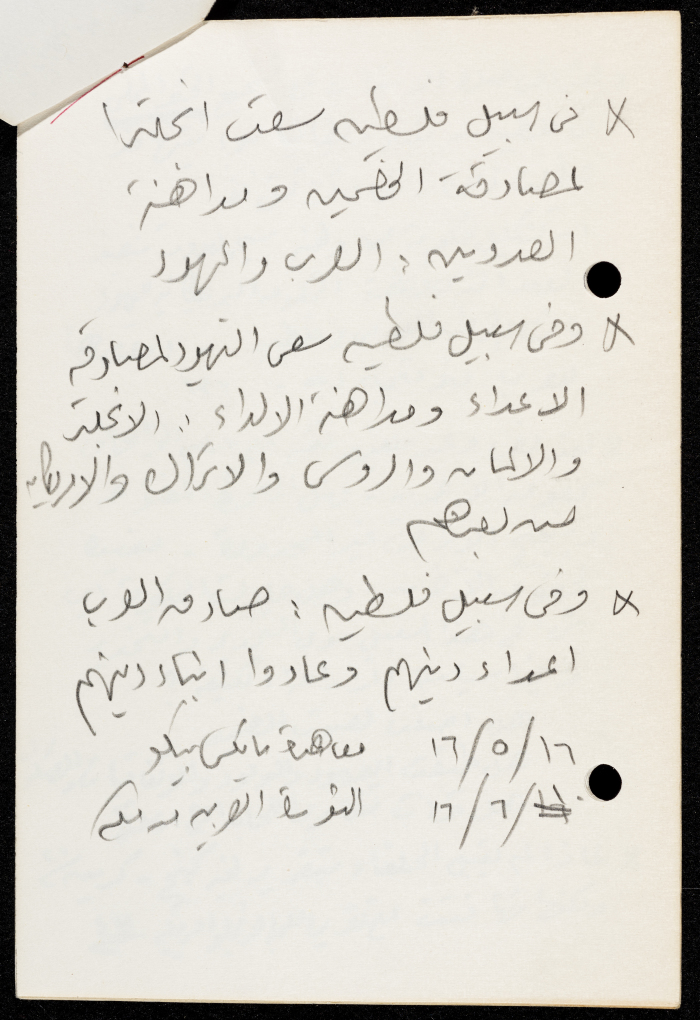 x في سبيل فلسطين سعت انجلترا
لمصادقة الخصمين ومداهنة
العدوين : العرب واليهود
x وفي سبيل فلسطين سعى اليهود لمصادقة
الاعداء ومداهنة الالداء : الانجليز
والالمان والروس والاتراك والامريكان
x وفي سبيل فلسطين : صادق العرب
اعداء دينهم وعادوا ابناء دينهم
١٦/٥/١٦ معاهدة سايكس بيكو
١٦/٦/ الثورة العربية من مكة